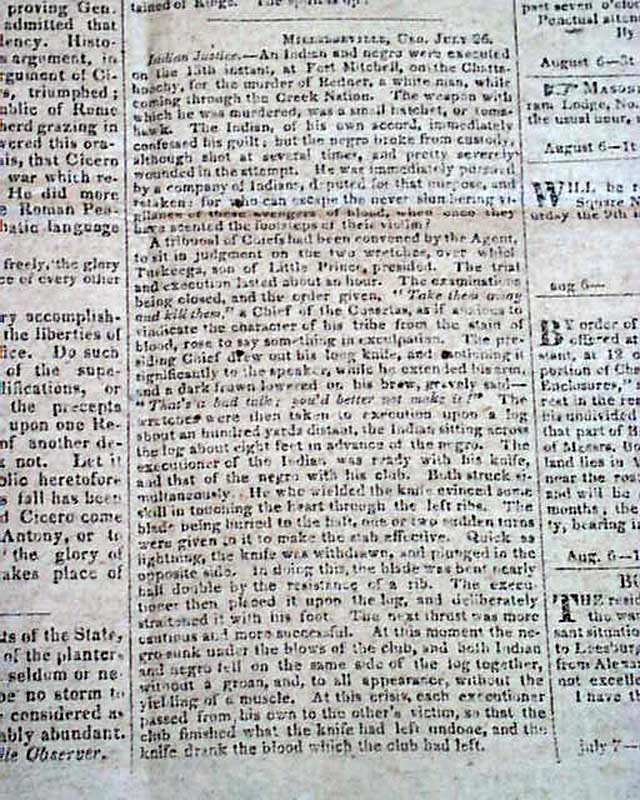 proving Gen.
admitted that
dency. Histo-
argument, in
rgument of Ci-
s, triumphed;
ublic of Rome
herd grazing in
wered this ora-
ais, that Cicero
war which re-
He did more
e Roman Peo-
hatic language
freely, the glory
ce of every other
ry accomplish-
the liberties of
fice. Do such
of the supe-
lifications, or
the precepts
upon one Re-
of another de-
k not. Let it
olic heretofore
s fall has been
d Cicero come
Antony, or to
the glory of
akes place of
ts of the State,
of the planter
seldom or ne-
be no storm to
considered as
ably abundant.
Observer.
MILLEDGEVILLE, GEO. JULY 26.
Indian Justice.—An Indian and negro were executed
on the 13th instant, at Fort Mitchell, on the Chatta-
hoochy, for the murder of Redner, a white man, while
coming through the Creek Nation. The weapon with
which he was murdered, was a small hatchet, or toma-
hawk. The Indian, of his own accord, immediately
confessed his guilt; but the negro broke from custody,
although shot at several times, and pretty severely
wounded in the attempt. He was immediately pursued
by a company of Indians, deputed for that purpose, and
retaken: for who can escape the never slumbering vi-
gilance of these avengers of blood, when once they
have scented the footsteps of their victim?
A tribunal of Chiefs had been convened by the Agent,
to sit in judgment on the two wretches, over which
Tuskeega, son of Little Prince, presided. The trial
and execution lasted about an hour. The examinations
being closed, and the order given, "Take them away
and kill them," a Chief of the Cussetas, as if anxious to
vindicate the character of his tribe from the stain of
blood, rose to say something in exculpation. The pre-
siding Chief drew out his long knife, and motioning it
significantly to the speaker, while he extended his arm,
and a dark frown lowered on his brow, gravely said—
"That's a bad talk; you'd better not make it!" The
wretches were then taken to execution upon a log
about an hundred yards distant, the Indian sitting across
the log about eight feet in advance of the negro. The
executioner of the Indian was ready with his knife,
and that of the negro with his club. Both struck si-
multaneously. He who wielded the knife evinced some
skill in touching the heart through the left ribs. The
blade being buried to the hilt, one or two sudden turns
were given to it to make the stab effective. Quick as
lightning, the knife was withdrawn, and plunged in the
opposite side. In doing this, the blade was bent nearly
half double by the resistance of a rib. The execu-
tioner then placed it upon the log, and deliberately
straitened it with his foot. The next thrust was more
cautious and more successful. At this moment the ne-
gro sunk under the blows of the club, and both Indian
and negro fell on the same side of the log together,
without a groan, and, to all appearance, without the
yielding of a muscle. At this crisis, each executioner
passed from his own to the other's victim, so that the
club finished what the knife had left undone, and the
knife drank the blood which the club had left.
past seven o'clo
Punctual atten
By
August 6—3t
MASON
ram Lodge, No
the usual hour,
August 6—1t
WILL be
Square N
urday the 9th
aug 6—
BY order of
offered at
stant, at 12
portion of Cha
Enclosures,"
rest in the rem
his undivided
that part of B
of Messrs.
land lies in
near the road
and will be
months; the
ty, bearing
Aug. 6—1
THE resid
the wa
sant situatio
to Leesburg
from Alexa
not excelle
I have t
july 7—